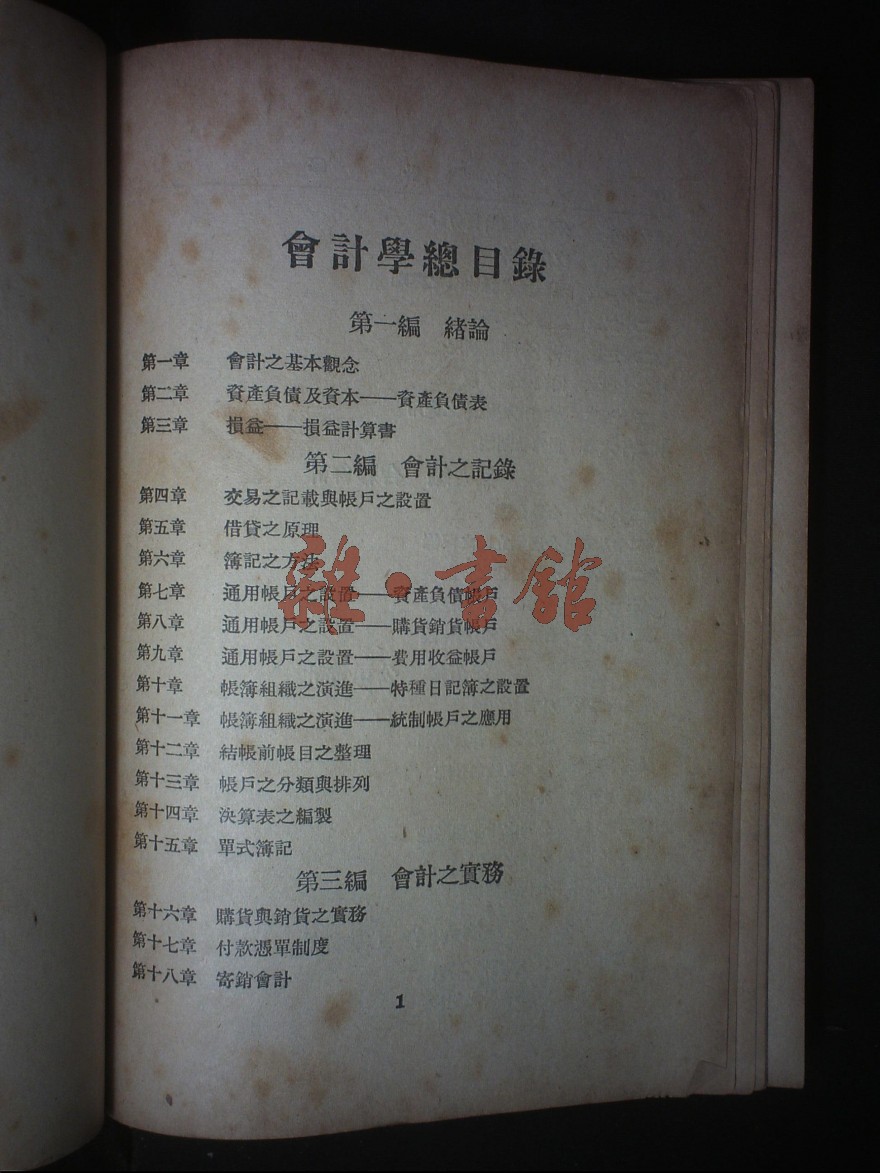 會計學總目錄
第一編 緒論
第一章 會計之基本觀念
第二章 資產負債及資本——資產負債表
第三章 損益——損益計算書
第二編 會計之記錄
第四章 交易之記載與帳戶之設置
第五章 借貸之原理
第六章 簿記之方法
第七章 通用帳戶之設置——資產負債帳戶
第八章 通用帳戶之設置——購貨銷貨帳戶
第九章 通用帳戶之設置——費用收益帳戶
第十章 帳簿組織之演進——特種日記簿之設置
第十一章 帳簿組織之演進——統制帳戶之應用
第十二章 結帳前帳目之整理
第十三章 帳戶之分類與排列
第十四章 決算表之編製
第十五章 單式簿記
第三編 會計之實務
第十六章 購貨與銷貨之實務
第十七章 付款憑單制度
第十八章 寄銷會計
1
雜·書館